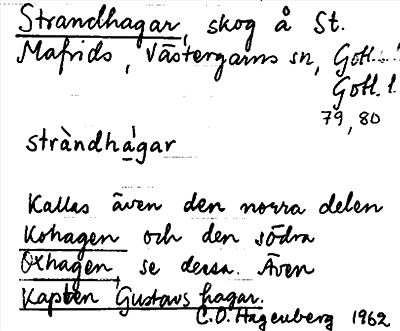 Strandhagar, skog å St.
Mafrids, Västergarns sn, Gotl.
Gotl. l.
79, 80
stràndhá̱gar
Kallas även den norra delen
Kohagen och den södra
Oxhagen, se dessa. Även
Kapten Gustavs hagar.
C.O. Hagenberg 1962